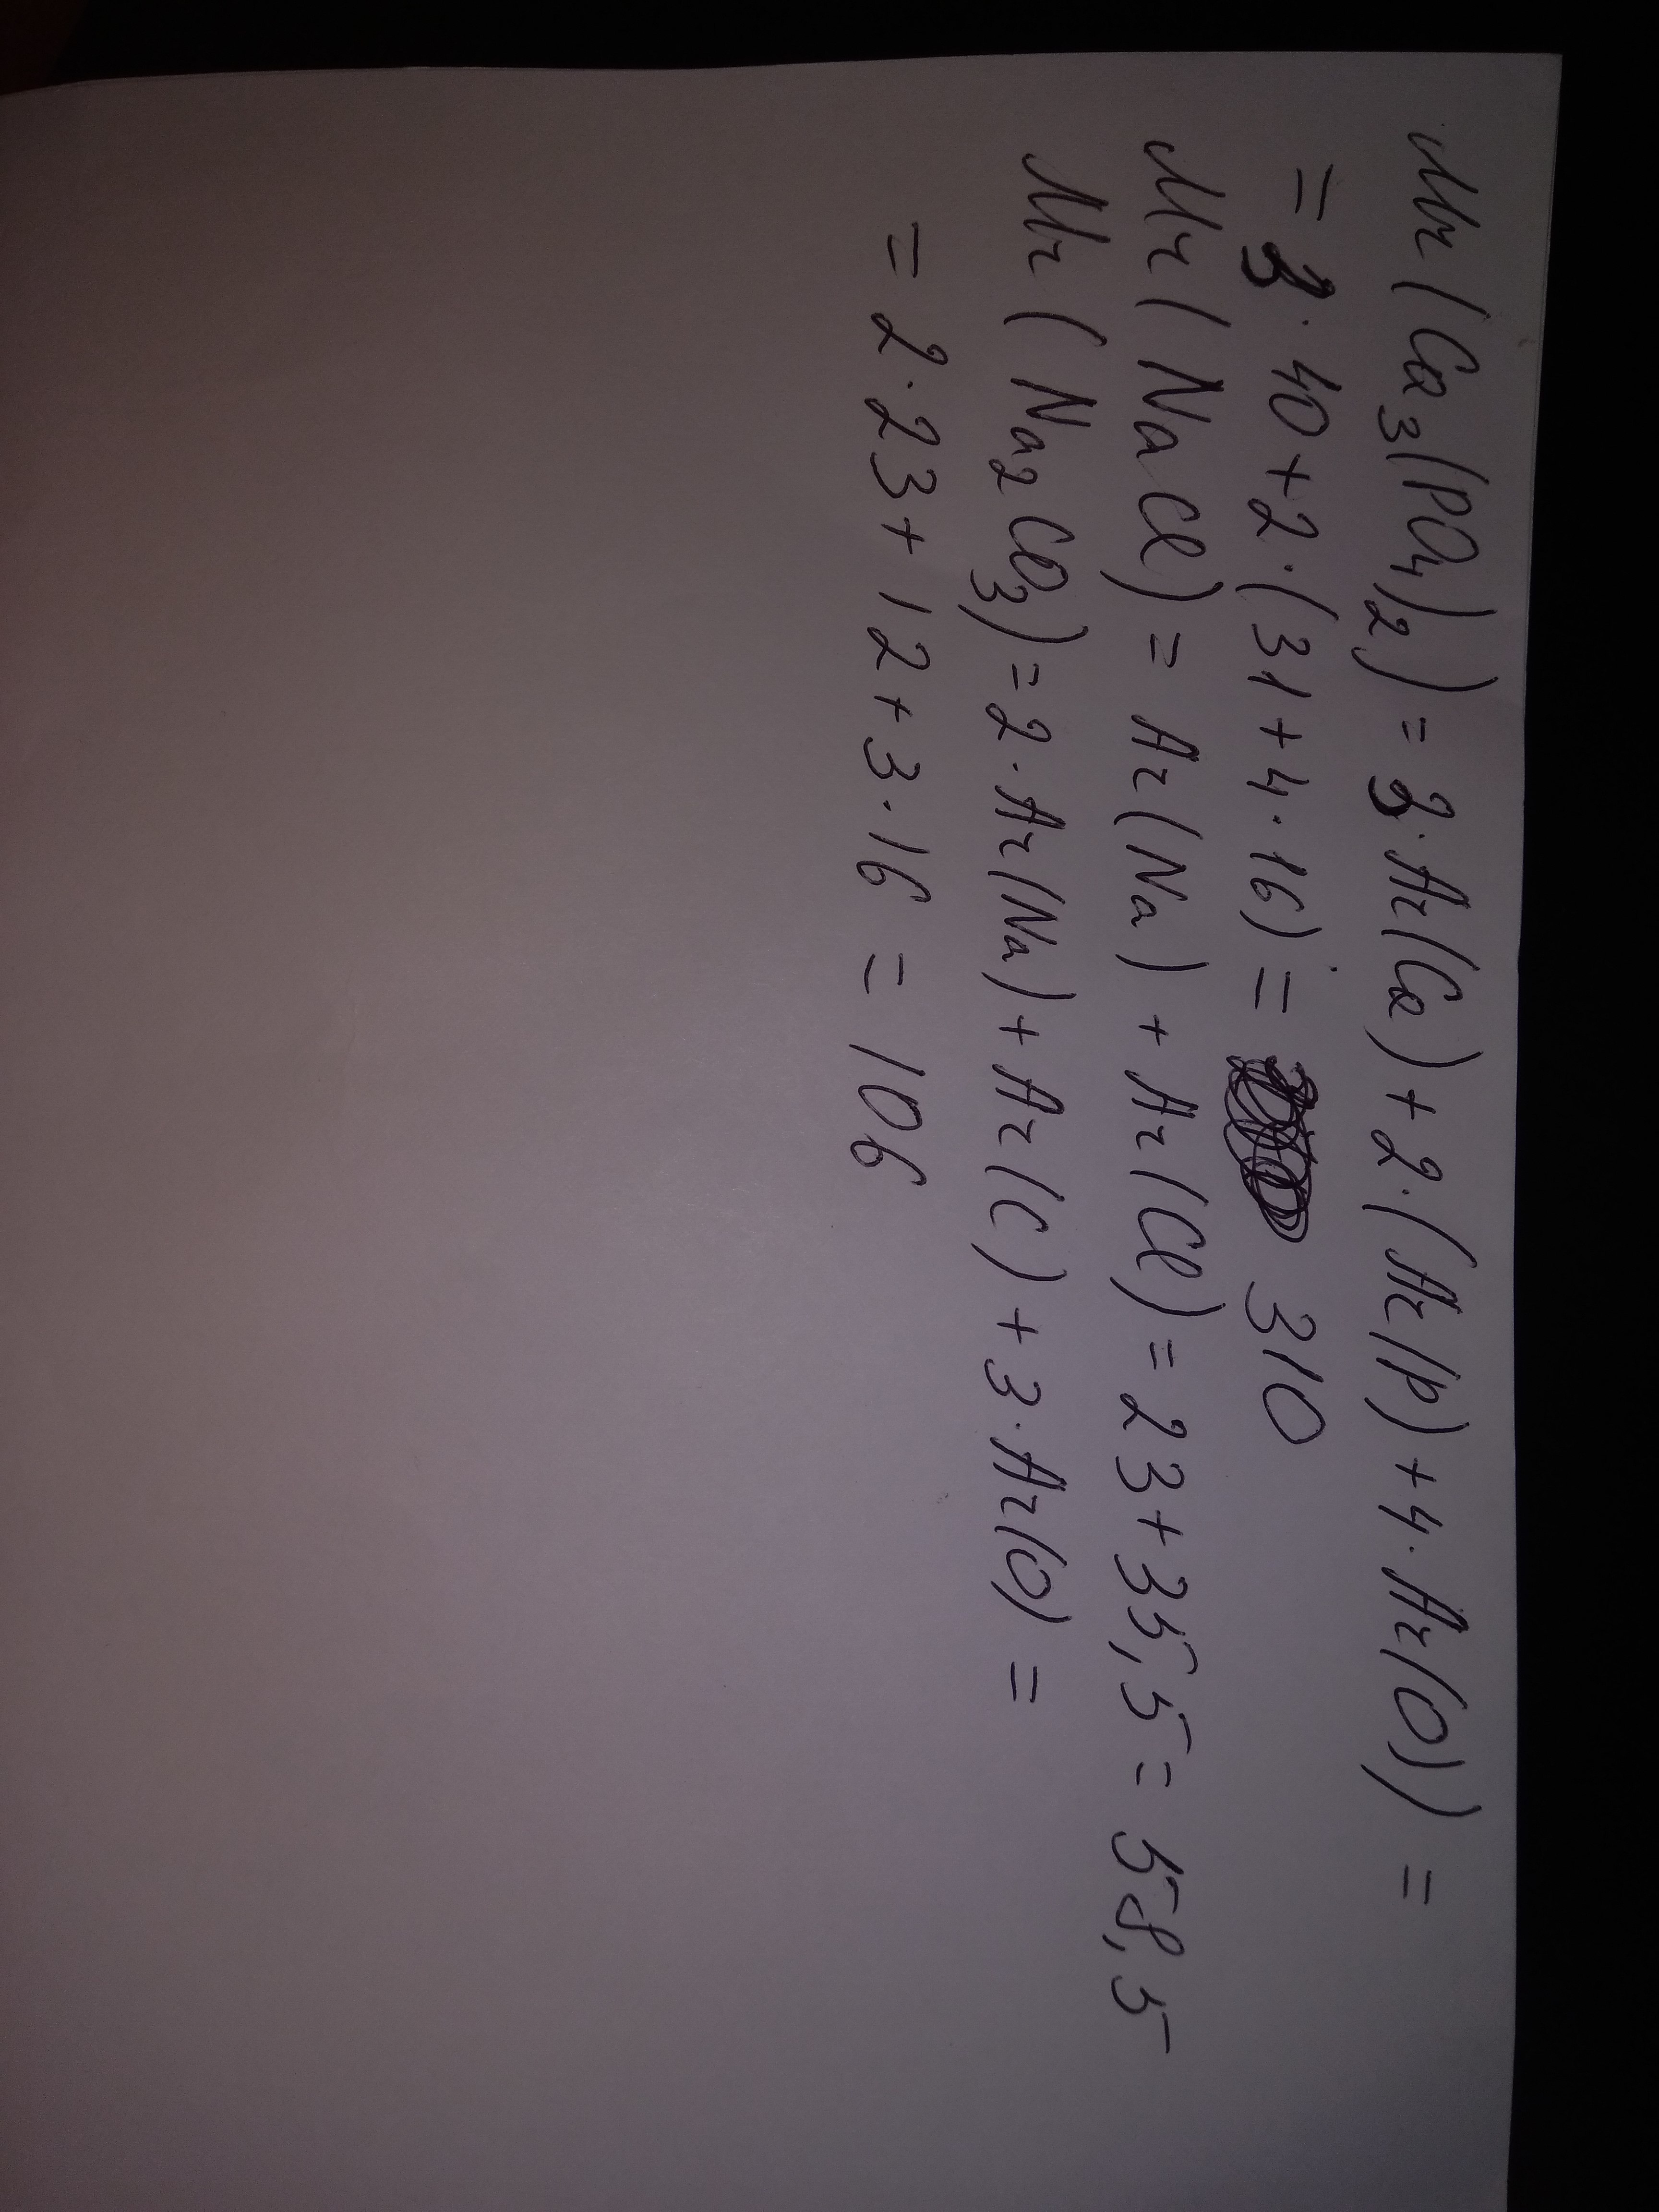 Mr(Ca₃(PO₄)₂) = 3·Ar(Ca) + 2·(Ar(P) + 4·Ar(O)) =
= 3·40+2·(31+4·16) = 310
Mr(NaCl) = Ar(Na) + Ar(Cl) = 23+35,5 = 58,5
Mr(Na₂CO₃) = 2·Ar(Na) + Ar(C) + 3·Ar(O) =
= 2·23+12+3·16 = 106